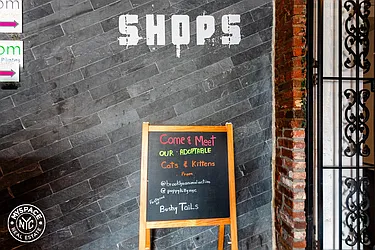 SHOPS
om
om
Come & Meet
OUR ADOPTABLE
Cats & Kittens
From
@brooklynanimalaction
@puppykittynyc
Bushy Tails
MYSPACE
NYC
REAL ESTATE